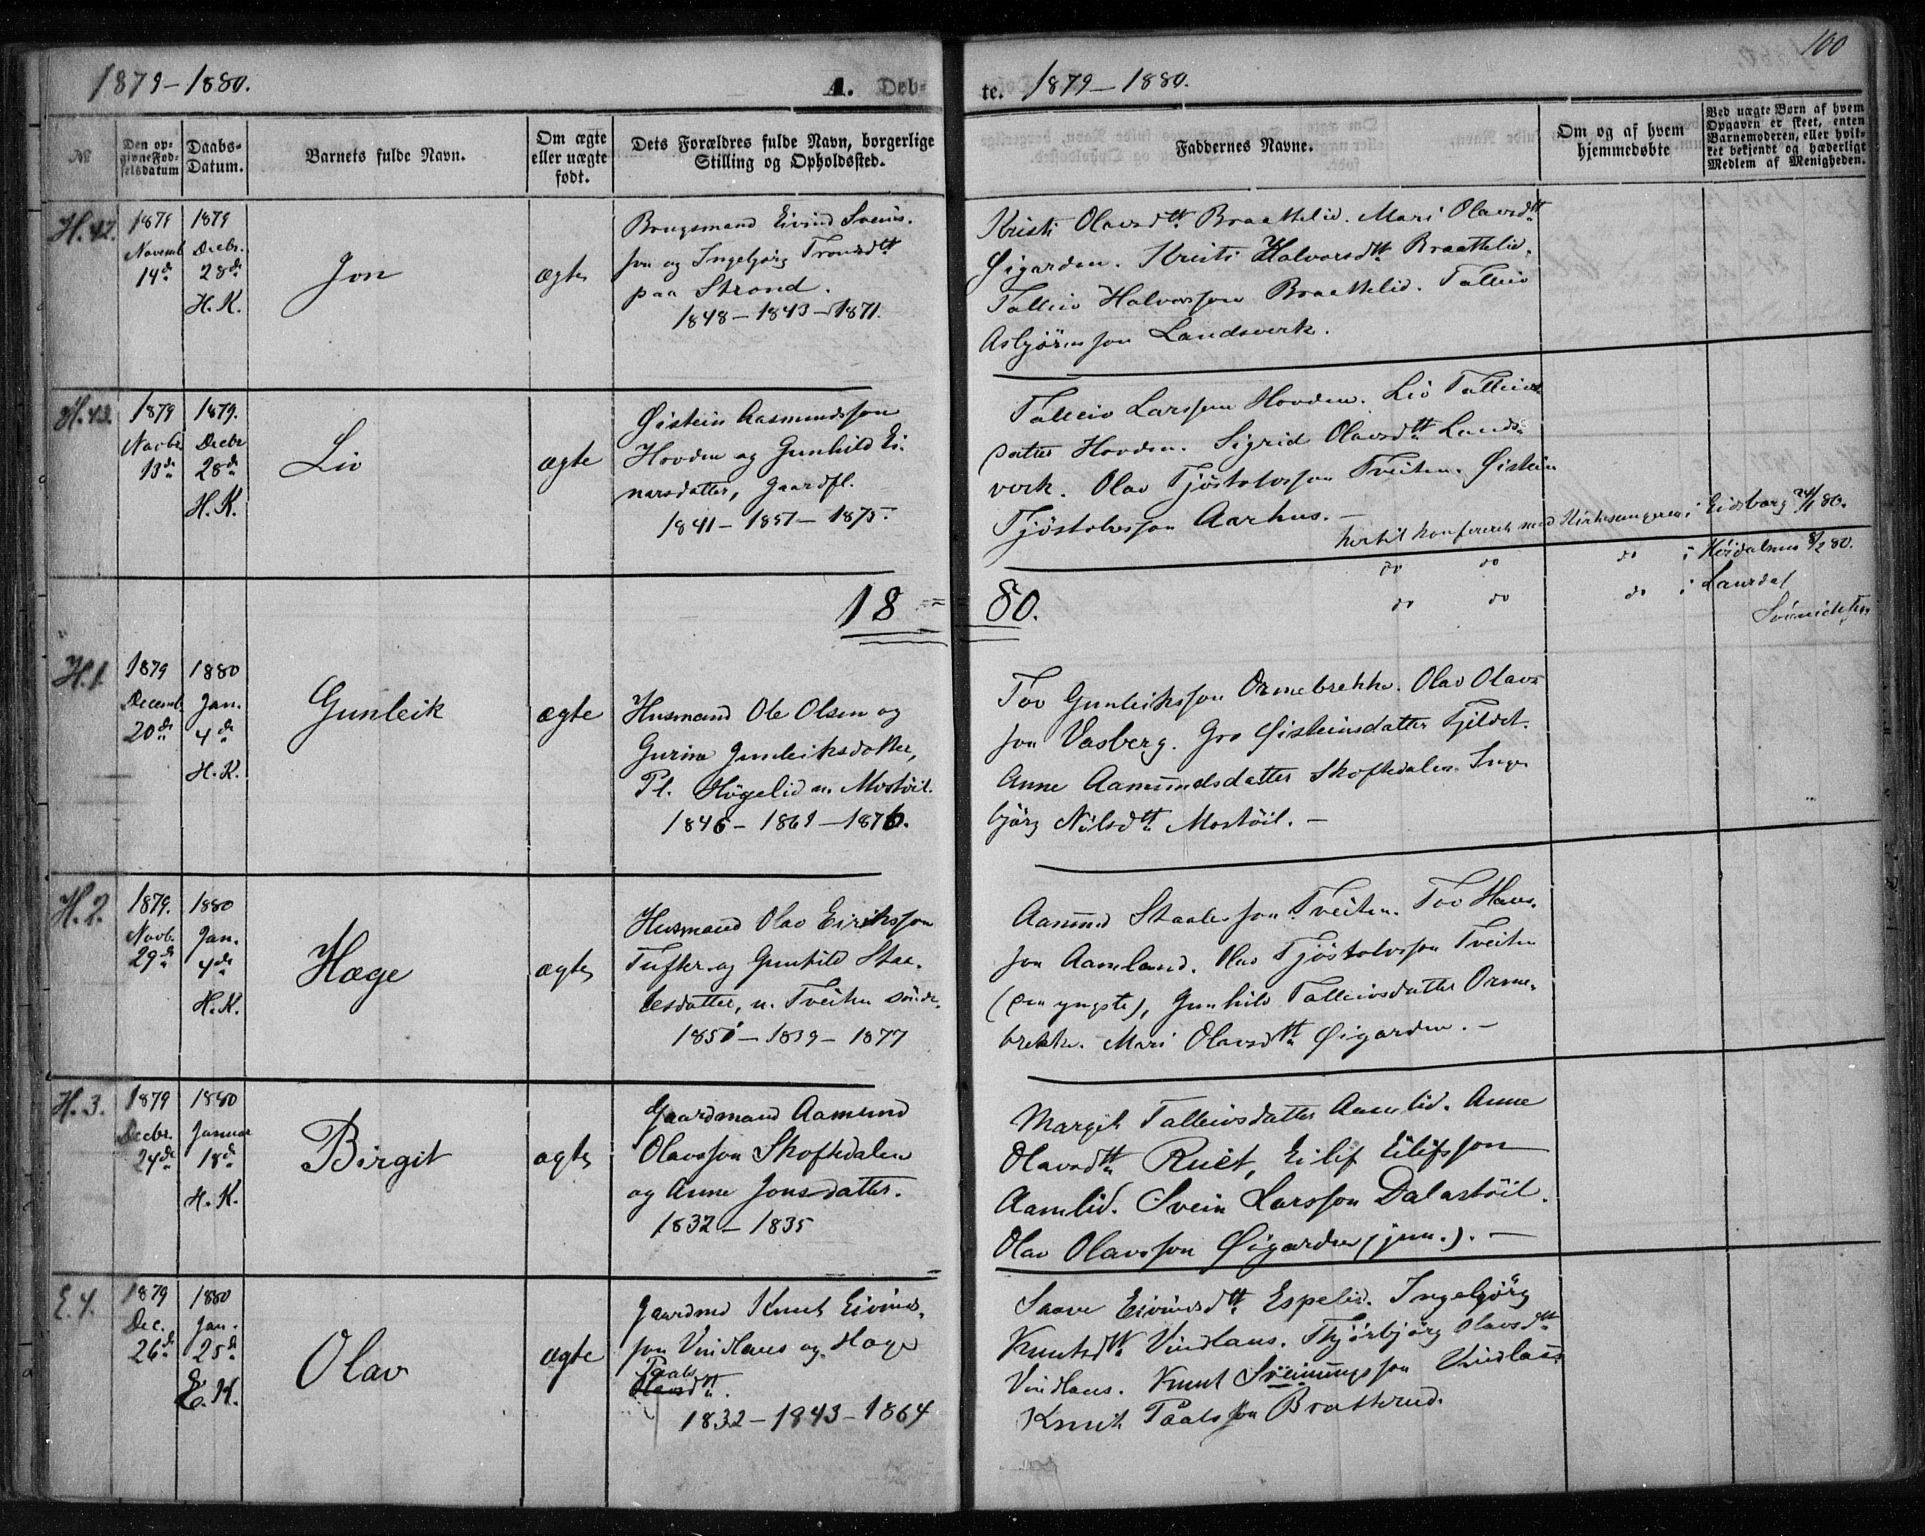 1879-1880.
A. Døb-
te. 1879-1880.
100
№
Den op-
givne Fød-
selsdatum
Daabs-
Datum.
Barnets fulde Navn.
Om ægte
eller uægte
født.
Dets Forældres fulde Navn, borgerlige
Stilling og Opholdssted.
Faddernes Navne.
Om og af hvem
hjemmedøbte
Ved uægte Børn af hvem
Opgaven er skeet, enten
Barnemoderen, eller hvil-
ket bekjendt og hæderligt
Medlem af Menigheden.
H.42.
1879
Novemb
14de
1879
Decbr.
28de
H.K.
Jon
ægte
Brugsmand Eivind Svens-
son og Ingebjørg Tronsdtt
paa Strond.
1848-1843-1871.
Kristi Olavsdtt Braattelid. Mari Olavsdtt
Øigarden. Kristi Halvorsdtt Braattelid.
Talleiv Halvorsson Braattelid. Talleiv
Asbjørnsson Landsverk.
H.43.
1879
Novbr
13de
1879.
Decbr
28de
H.K.
Liv
ægte
Øistein Aasmundsson
Hovden og Gunhild Ei-
narsdatter, Gaardfl.
1841-1851-1875.
Talleiv Larsson Hovden. Liv Talleivs
datter Hovden. Sigrid Olavsdtt Lands-
verk. Olav Tjøstolvsson Tveiten. Øistein
Tjøstolvsson Aarhus. -
hertil konfereret med Kirkesangeren i Eidsborg 24/1 80.
do do do i Høidalsmo 8/2 80.
do do do i Laurdal
18 = 80.
H.1.
1879
Decemb
20de
1880
Jan.
4de
H.K.
Gunleik
ægte
Husmand Ole Olsen og
Gurine Gunleiksdatter,
Pl. Høgelid u. Mostøil.
1846-1861-1876.
Tov Gunleiksson Ormebrekke. Olav Olavs
son Vasberg. Gro Øisteinsdatter Fjeldet.
Anne Aamundsdatter Skoftedalen. Inge
bjørg Nilsdtt Mostøil. -
H.2.
1879.
Novb.
29de
1880
Jan.
4de
H.K.
Hæge
ægte
Husmand Olav Eiriksson
Tufter og Gunhild Staa-
lesdatter, u. Tveiten søndr.
1851-1839-1877
Aamund Staalesson Tveiten. Tov Hans-
son Aamland. Olav Tjøstolvsson Tveiten
(den yngste), Gunhild Talleivsdatter Orme-
brekke. Mari Olavsdtt Øigarden. -
H.3.
1879
Decbr.
24de
1880
Januar
18de
H.K.
Birgit
ægte
Gaardmand Aamund
Olavsson Skoftedalen
og Anne Jonsdatter.
1832-1835
Margit Talleivsdatter Aamlid. Anne
Olavsdtt Ruet, Eilif Eilifsson
Aamlid. Svein Larsson Dalastøil.
Olav Olavsson Øigarden (jun.). -
E.4.
1879
Dec.
26de
1880
Jan.
25de
E.K.
Olav
ægte
Gaardmd Knut Eivinds-
son Vindlaus og Hæge
Paals
Olavsdtt.
1832-1843-1864
Saave Eivindsdtt Espelid. Ingebjørg
Knutsdtt Vindlaus. Thjørbjørg Olavsdtt
Vindlaus. Knut Sveinungsson Vindlaus
Knut Paalsson Bratterud.